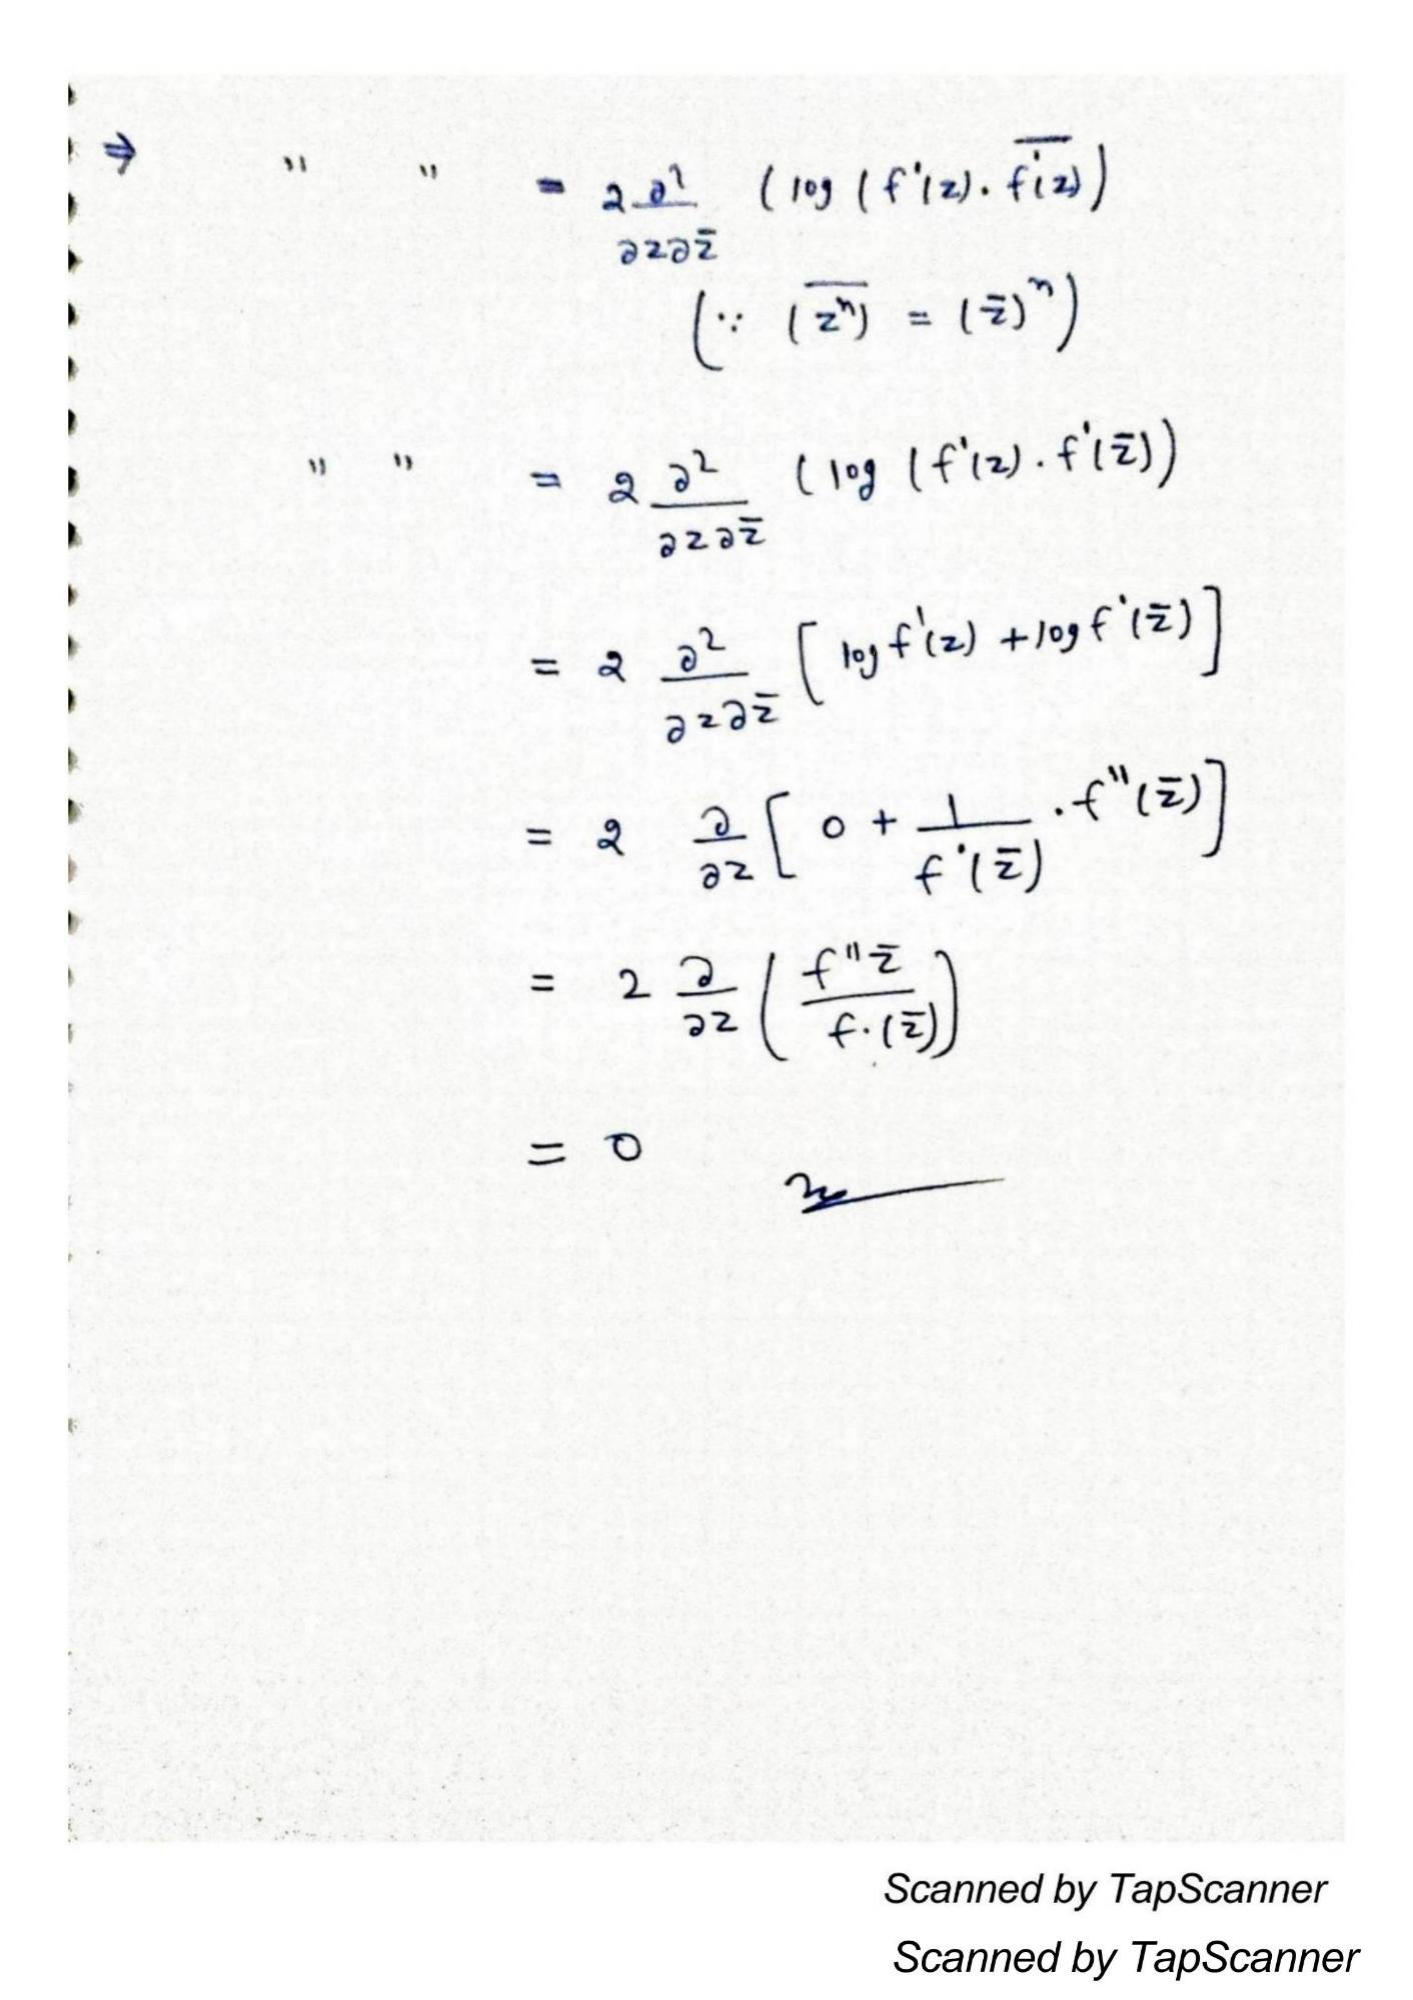 ⇒ " " = 2 ∂²/∂z∂z̅ (log (f'(z). \overline{f'(z)})
(∵ (\overline{zⁿ}) = (z̅)ⁿ)
" " = 2 ∂²/∂z∂z̅ (log (f'(z). f'(z̅))
= 2 ∂²/∂z∂z̅ [log f'(z) + log f'(z̅)]
= 2 ∂/∂z [0 + 1/f'(z̅) . f"(z̅)]
= 2 ∂/∂z (f"z̅/f.(z̅))
= 0
Scanned by TapScanner
Scanned by TapScanner